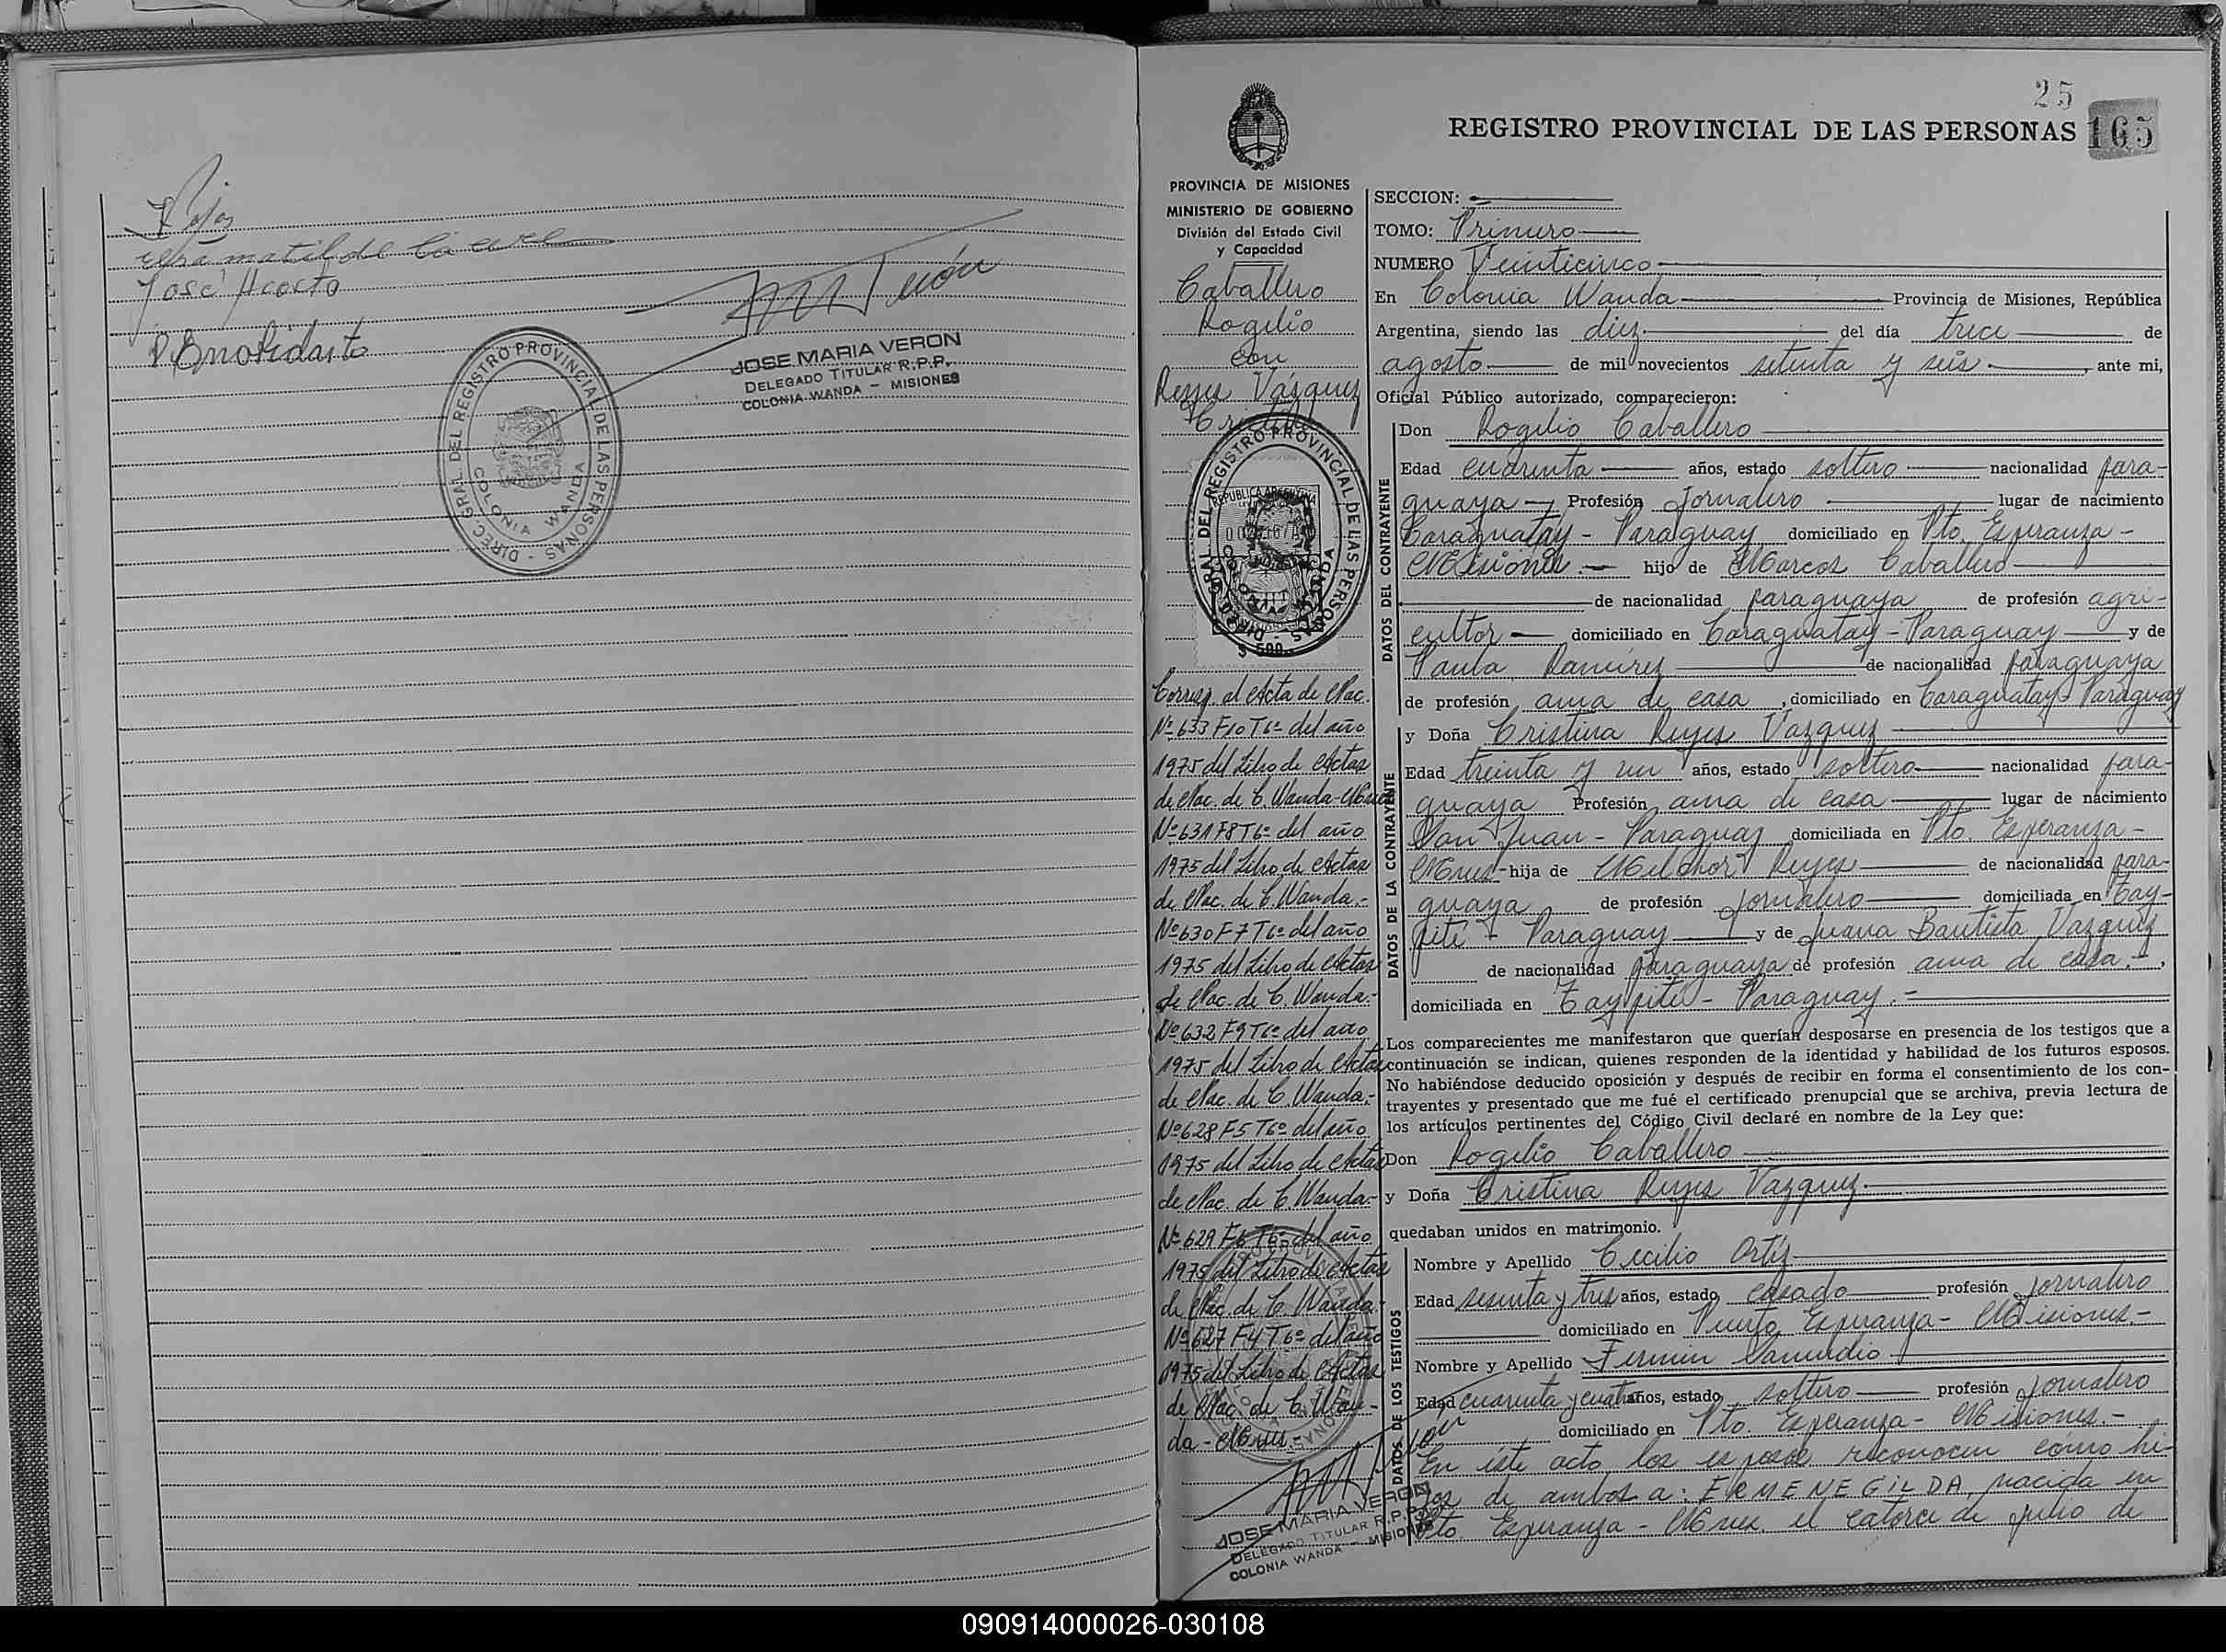 Rojas
José Acosta
JOSE MARIA VERON
DELEGADO TITULAR R.P.P.
COLONIA WANDA - MISIONES
DIREC. GRAL. DEL REGISTRO PROVINCIAL DE LAS PERSONAS -
COLONIA WANDA
25
REGISTRO PROVINCIAL DE LAS PERSONAS 165
PROVINCIA DE MISIONES
MINISTERIO DE GOBIERNO
División del Estado Civil
y Capacidad
Caballero
Rogelio
con
Reyes Vázquez
Cristina
DIREC. GRAL. DEL REGISTRO PROVINCIAL DE LAS PERSONAS -
REPUBLICA ARGENTINA
COLONIA WANDA
$ 500
Corresp. al Acta de Nac.
Nº 633 F10 T6º del año
1975 del Libro de Actas
de Nac. de C. Wanda-Mnes
Nº 631 F8 T6º del año
1975 del Libro de Actas
de Nac. de C. Wanda.-
Nº 630 F7 T6º del año
1975 del Libro de Actas
de Nac. de C. Wanda.-
Nº 632 F9 T6º del año
1975 del Libro de Actas
de Nac. de C. Wanda.-
Nº 628 F5 T6º del año
1975 del Libro de Actas
de Nac. de C. Wanda.-
Nº 629 F6 T6º del año
1975 del Libro de Actas
de Nac. de C. Wanda.-
Nº 627 F4 T6º del año
1975 del Libro de Actas
de Nac. de C. Wan-
da - Mnes.-
JOSE MARIA VERON
DELEGADO TITULAR R.P.P.
COLONIA WANDA - MISIONES
SECCION: —
TOMO: Primero
NUMERO Veinticinco
En Colonia Wanda Provincia de Misiones, República
Argentina, siendo las diez del día trece de
agosto de mil novecientos setenta y seis , ante mi,
Oficial Público autorizado, comparecieron:
DATOS DEL CONTRAYENTE
Don Rogelio Caballero
Edad cuarenta años, estado soltero nacionalidad para-
guaya Profesión Jornalero lugar de nacimiento
Caraguatay - Paraguay domiciliado en Pto. Esperanza -
Misiones.- hijo de Marcos Caballero
de nacionalidad paraguaya de profesión agri-
cultor domiciliado en Caraguatay - Paraguay y de
Paula Ramírez de nacionalidad paraguaya
de profesión ama de casa , domiciliado en Caraguatay - Paraguay
DATOS DE LA CONTRAYENTE
y Doña Cristina Reyes Vazquez
Edad treinta y un años, estado soltera nacionalidad para-
guaya Profesión ama de casa lugar de nacimiento
San Juan - Paraguay domiciliada en Pto. Esperanza -
Mnes - hija de Melchor Reyes de nacionalidad para-
guaya de profesión Jornalero domiciliada en Tay-
pité - Paraguay y de Juana Bautista Vazquez
de nacionalidad paraguaya de profesión ama de casa.-,
domiciliada en Taypité - Paraguay.-
Los comparecientes me manifestaron que querían desposarse en presencia de los testigos que a
continuación se indican, quienes responden de la identidad y habilidad de los futuros esposos.
No habiéndose deducido oposición y después de recibir en forma el consentimiento de los con-
trayentes y presentado que me fué el certificado prenupcial que se archiva, previa lectura de
los artículos pertinentes del Código Civil declaré en nombre de la Ley que:
Don Rogelio Caballero
y Doña Cristina Reyes Vazquez
quedaban unidos en matrimonio.
DATOS DE LOS TESTIGOS
Nombre y Apellido Cecilio Ortíz
Edad sesenta y tres años, estado casado profesión Jornalero
domiciliado en Puerto Esperanza - Misiones.-
Nombre y Apellido Fermín Samudio
Edad cuarenta y cuatro años, estado soltero profesión Jornalero
domiciliado en Pto. Esperanza - Misiones.-
En éste acto los esposos reconocen cómo hi-
jos de ambos a: ERMENEGILDA, nacida en
Pto. Esperanza - Mnes el catorce de julio de
090914000026-030108